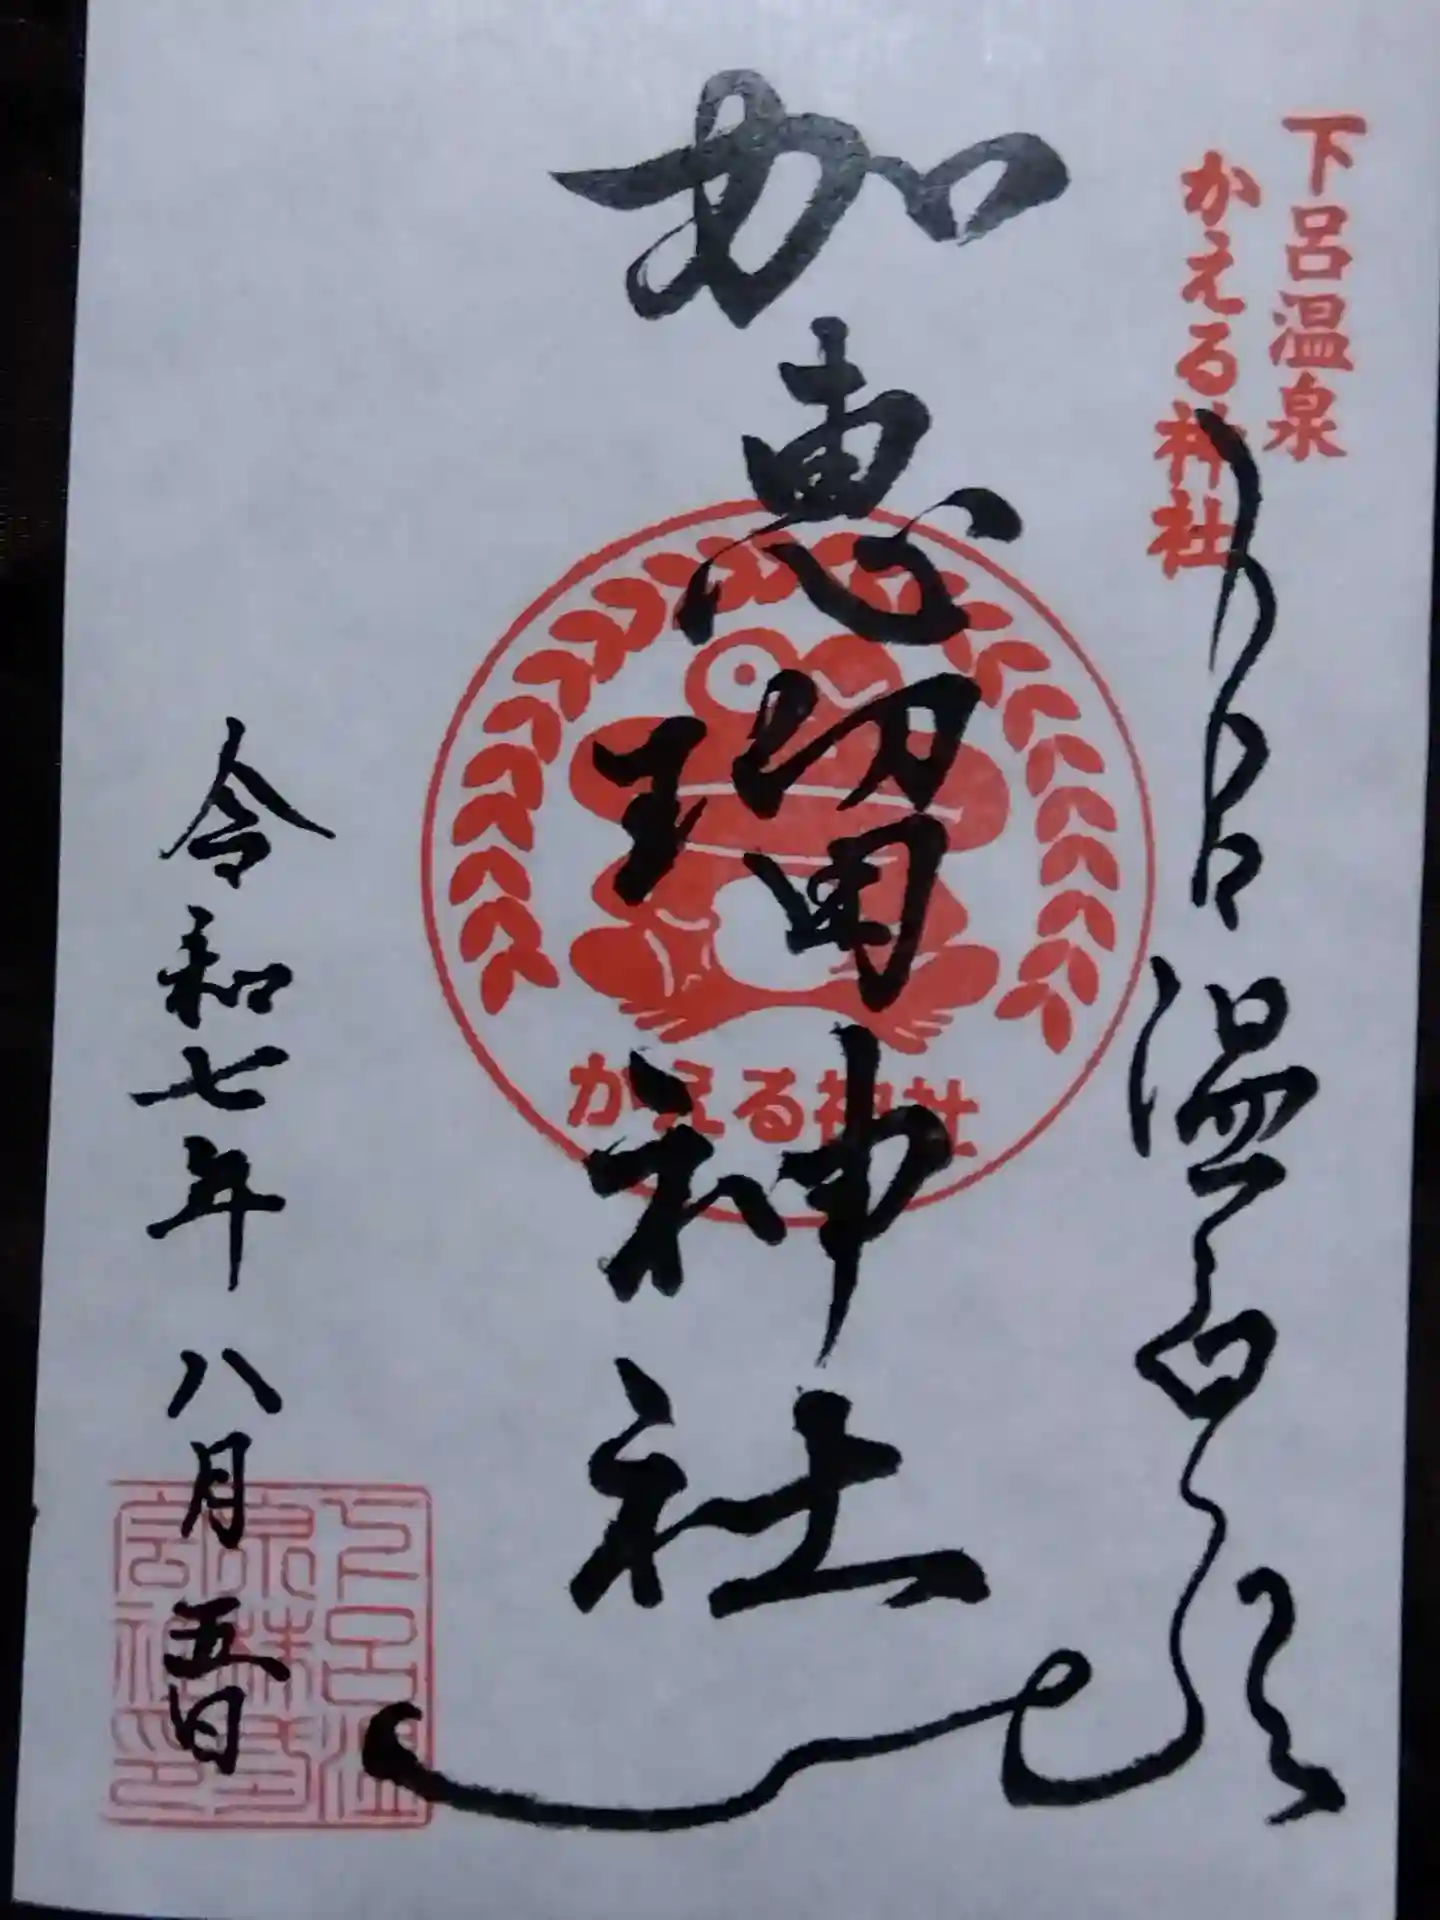 下呂温泉
かえる神社
下呂温泉
加恵瑠神社
かえる神社
令和七年八月五日